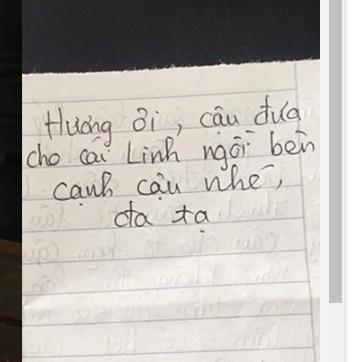 Hương ơi, cậu đưa
cho cái Linh ngồi bên
cạnh cậu nhé,
đa tạ